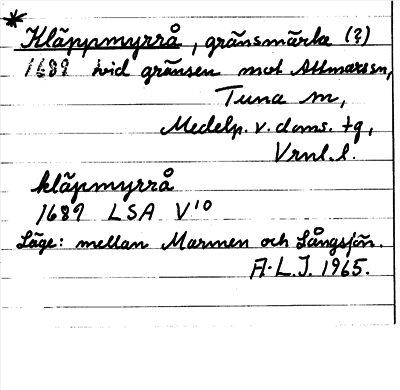 *
Kläppmyrrå, gränsmärke (?)
1689 vid gränsen mot Attmarssn,
Tuna sn,
Medelp. v. doms. tg,
Vrnl. l.
kläpmyrrå
1689 LSA V¹⁰
Läge: mellan Marmen och Långsjön.
A.L.J. 1965.